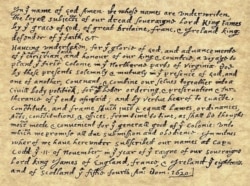 In yᵉ name of god Amen. We whose names are underwriten,
the loyall subjects of our dread soveraigne Lord King James
by yᵉ grace of god, of great Britaine, franc, & Ireland king,
defender of yᵉ faith, &c
Haveing undertaken, for yᵉ glorie of god, and advancemente
of yᵉ christian and honour of our king & countrie, a voyage to
plant yᵉ first colonie in yᵉ Northerne parts of Virginia. Doe
by these presents solemnly & mutualy in yᵉ presence of god, and
one of another, covenant, & combine our selves togeather into a
Civill body politick, for yᵉ better ordering, & preservation & fur=
therance of yᵉ ends aforesaid; and by vertue hearof to enacte,
constitute, and frame shuch just & equall Lawes, ordinances,
Acts, constitutions, & offices, from time to time, as shall be thought
most meete & convenient for yᵉ generall good of yᵉ colonie: unto
which we promise all due submission and obedience. In witnes
wherof we have hereunder subscribed our names at Cap=
Codd yᵉ .11. of November, in yᵉ year of yᵉ raigne of our soveraigne
Lord king James of England, france, & Ireland yᵉ eighteenth
and of Scotland yᵉ fiftie fourth. Ano: Dom. 1620.